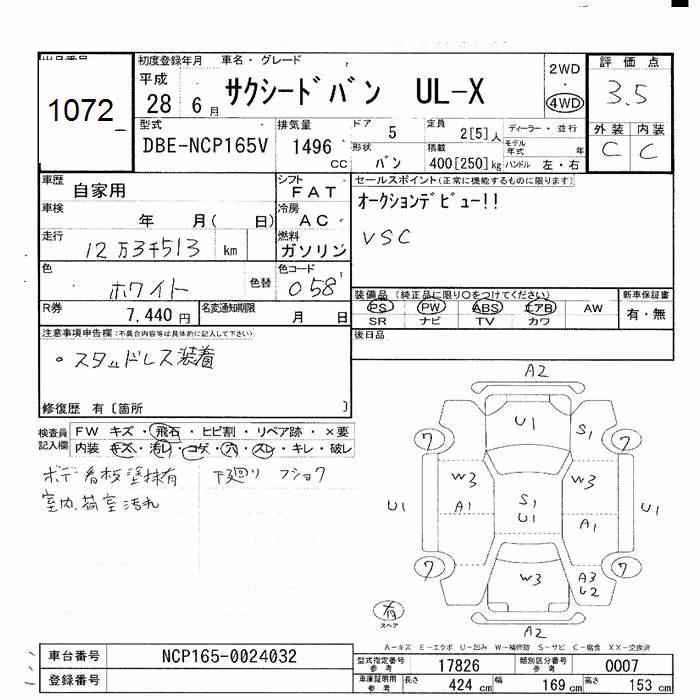 出品番号
1072
初度登録年月 車名・グレード
平成
28 6月 サクシードバン UL-X
2WD
・
4WD
評価点
3.5
型式 排気量 ドア 5 定員 2[5]人 ディーラー・並行
DBE-NCP165V 1496 CC 形状 バン 積載 400[250]kg モデル年式 年
ハンドル 左・右
外装 内装
C C
車歴 自家用 シフト FAT
車検 年 月( 日) 冷房 AC
走行 12万3千513 km 燃料 ガソリン
色 ホワイト 色替 色コード 058
R券 7,440円 名変通知期限 月 日
セールスポイント(正常に機能するものに限ります)
オークションデビュー!!
VSC
装備品 (純正品に限り○をつけてください) 新車保証書
PS PW ABS エアB AW 有・無
SR ナビ TV カワ
後日品
注意事項申告欄(不具合内容等は具体的に記入して下さい)
・スタッドレス装着
修復歴 有〔箇所 〕
検査員記入欄
FW キズ・飛石・ヒビ割・リペア跡・×要
内装 キズ・汚レ・コゲ・穴・スレ・キレ・破レ
ボデー看板塗抹有 下廻り フショク
室内、荷室汚れ
A2
U1
S1
7 7
W3 W3
A1 S1 A1
U1 U1 U1
7 7
W3
A3
U2
A2
有
スペア
A-キズ E-エクボ U-凹み W-補修跡 S-サビ C-腐食 XX-交換済
車台番号 NCP165-0024032
登録番号
型式指定番号参考 17826 類別区分番号参考 0007
車庫証明用参考 長さ 424 cm 幅 169 cm 高さ 153 cm